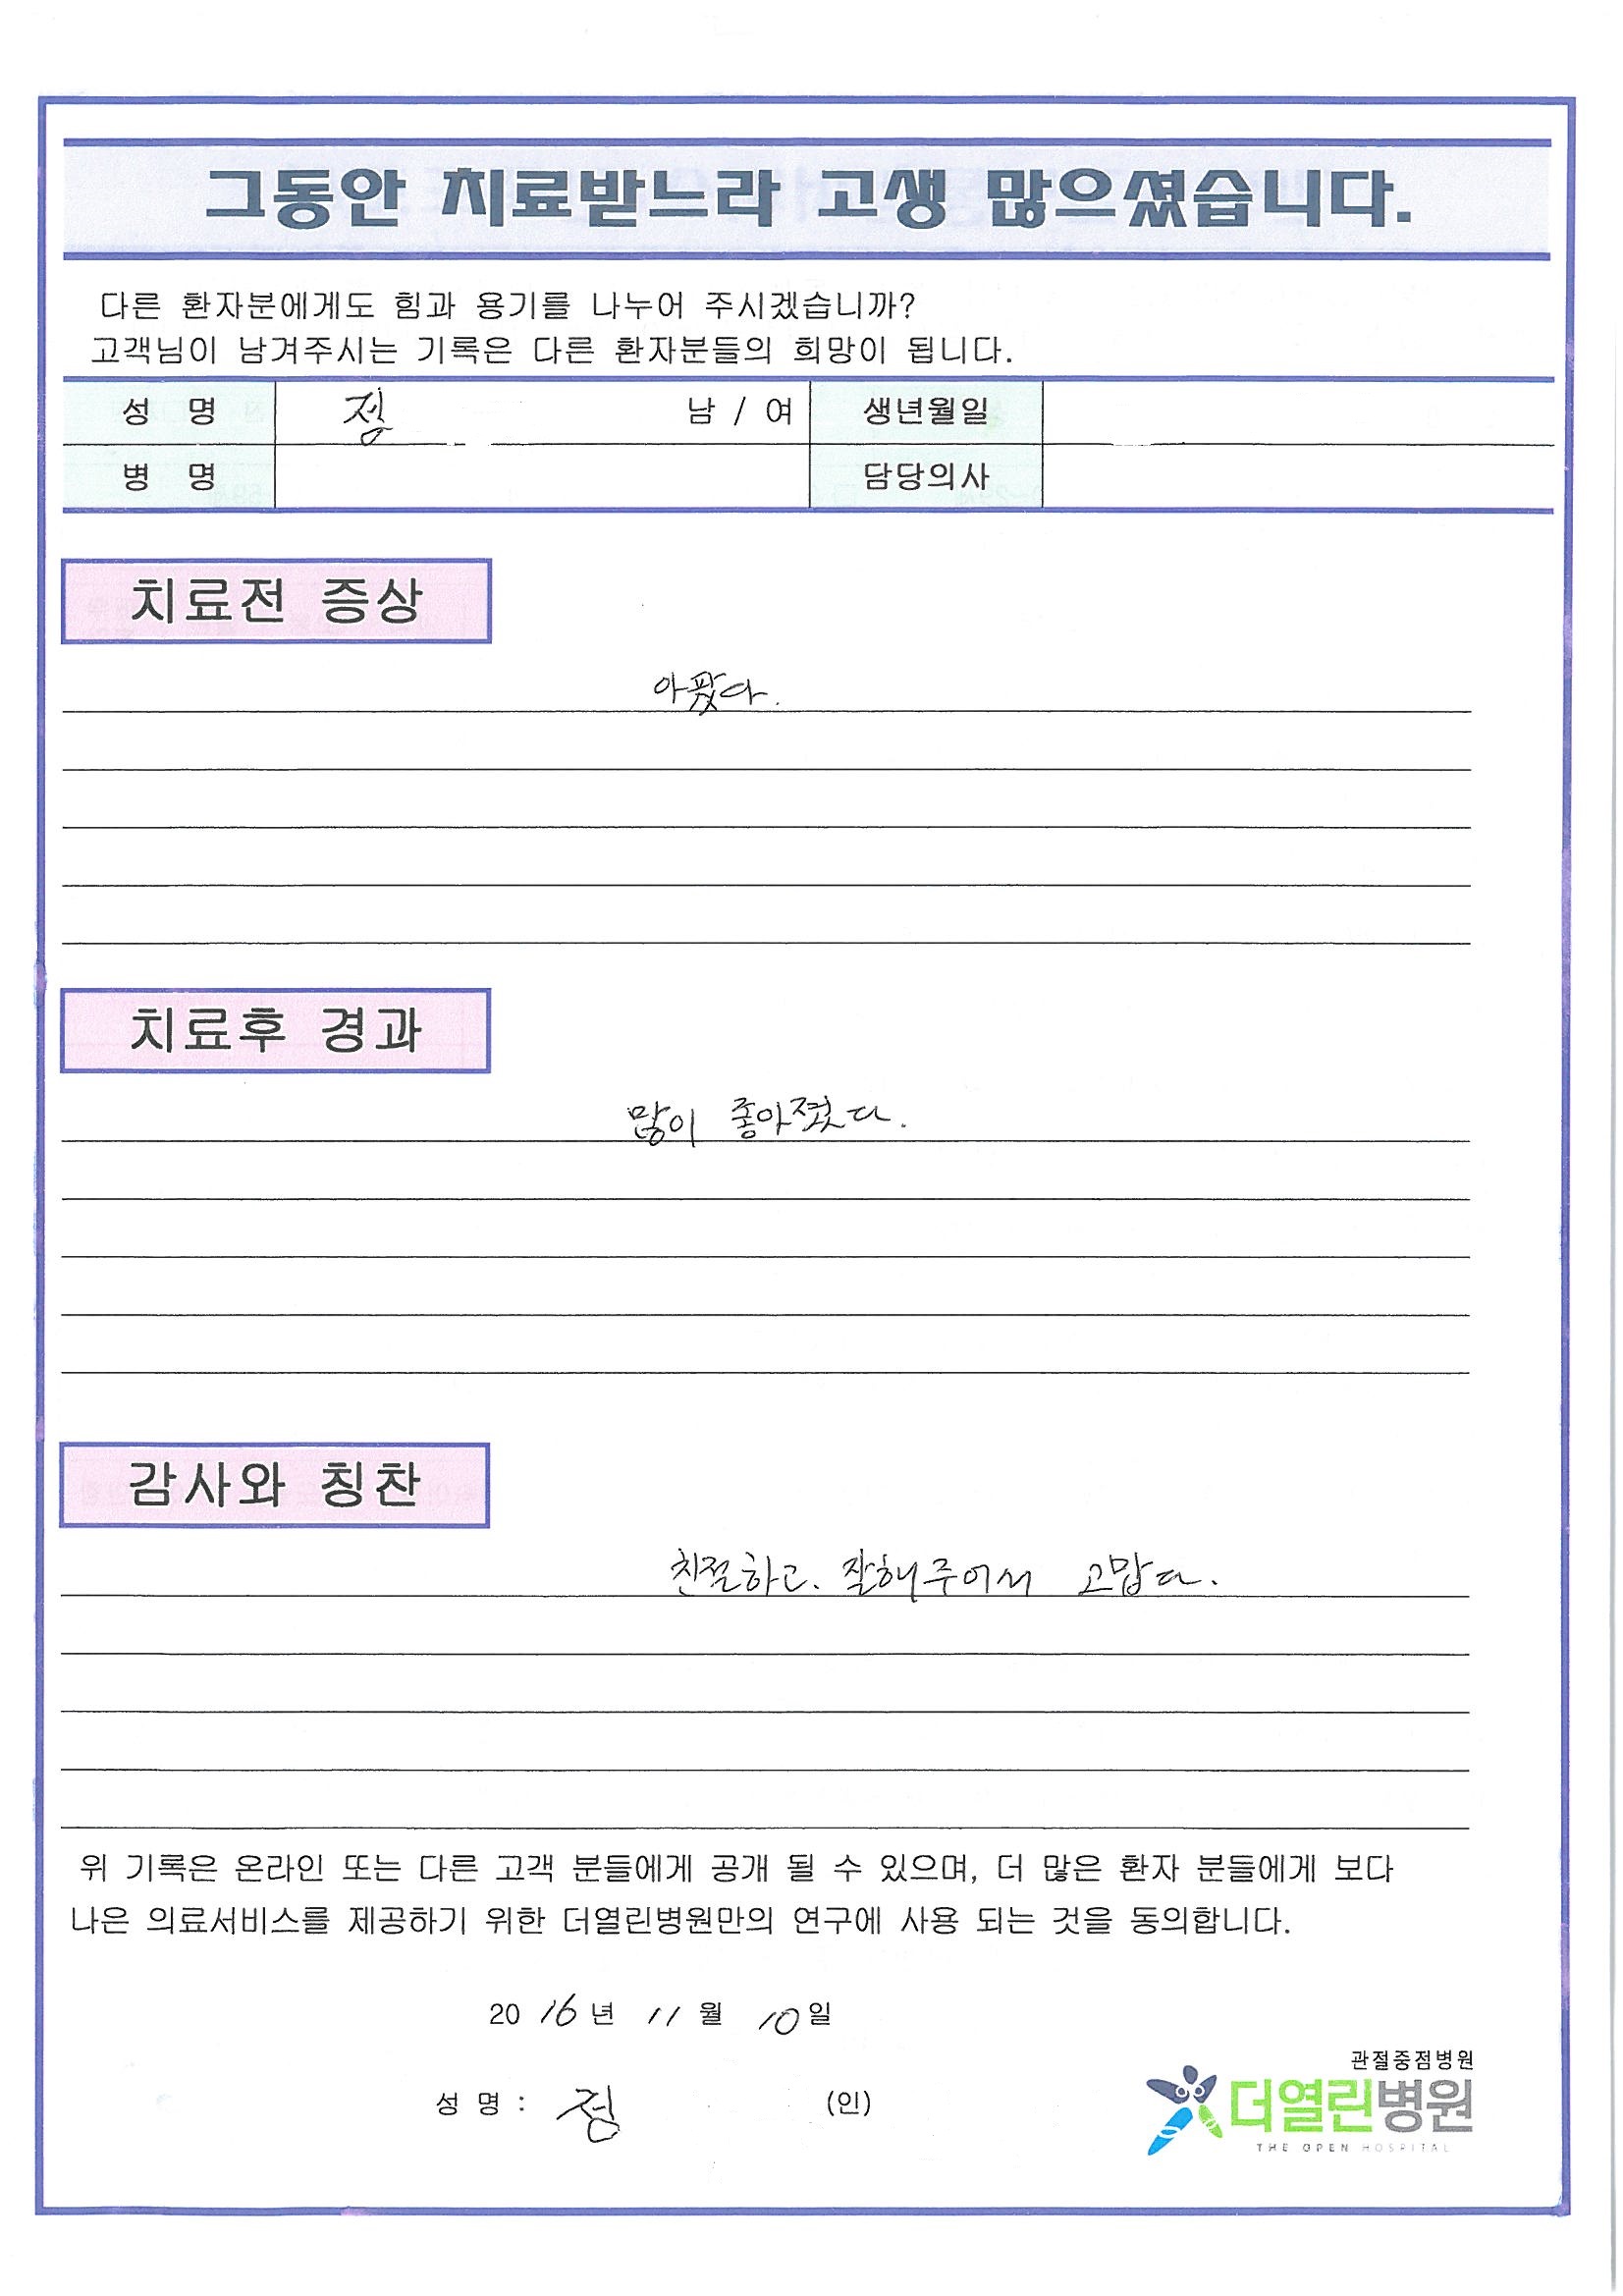 그동안 치료받느라 고생 많으셨습니다.
다른 환자분에게도 힘과 용기를 나누어 주시겠습니까?
고객님이 남겨주시는 기록은 다른 환자분들의 희망이 됩니다.
성 명 정 남 / 여 생년월일
병 명 담당의사
치료전 증상
아팠다.
치료후 경과
많이 좋아졌다.
감사와 칭찬
친절하고. 잘해주어서 고맙다.
위 기록은 온라인 또는 다른 고객 분들에게 공개 될 수 있으며, 더 많은 환자 분들에게 보다
나은 의료서비스를 제공하기 위한 더열린병원만의 연구에 사용 되는 것을 동의합니다.
20 16 년 11 월 10 일
성 명 : 정 (인)
관절중점병원
더열린병원
THE OPEN HOSPITAL